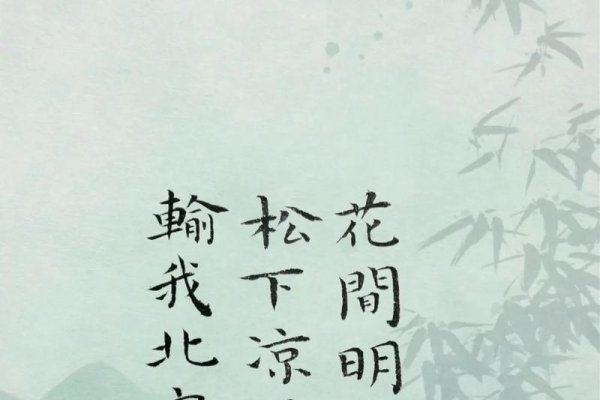 花間明
松下凉
輸我北